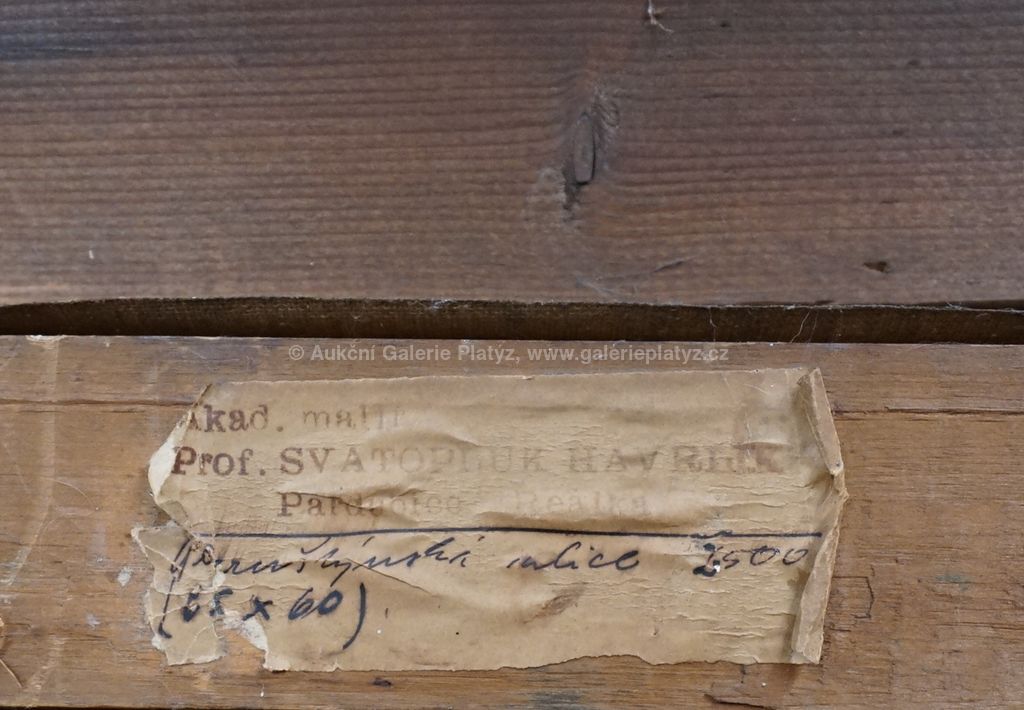 © Aukční Galerie Platýz, www.galerieplatyz.cz
Akad. malíř
Prof. SVATOPLUK HAVRLÍK
Pardubice Reálka
ulice 2500
x 60)